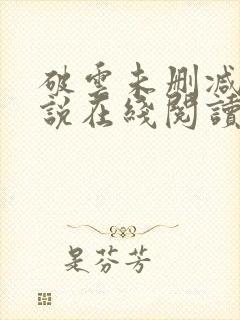 破雲未刪減
說在綫閱讀
是芬芳